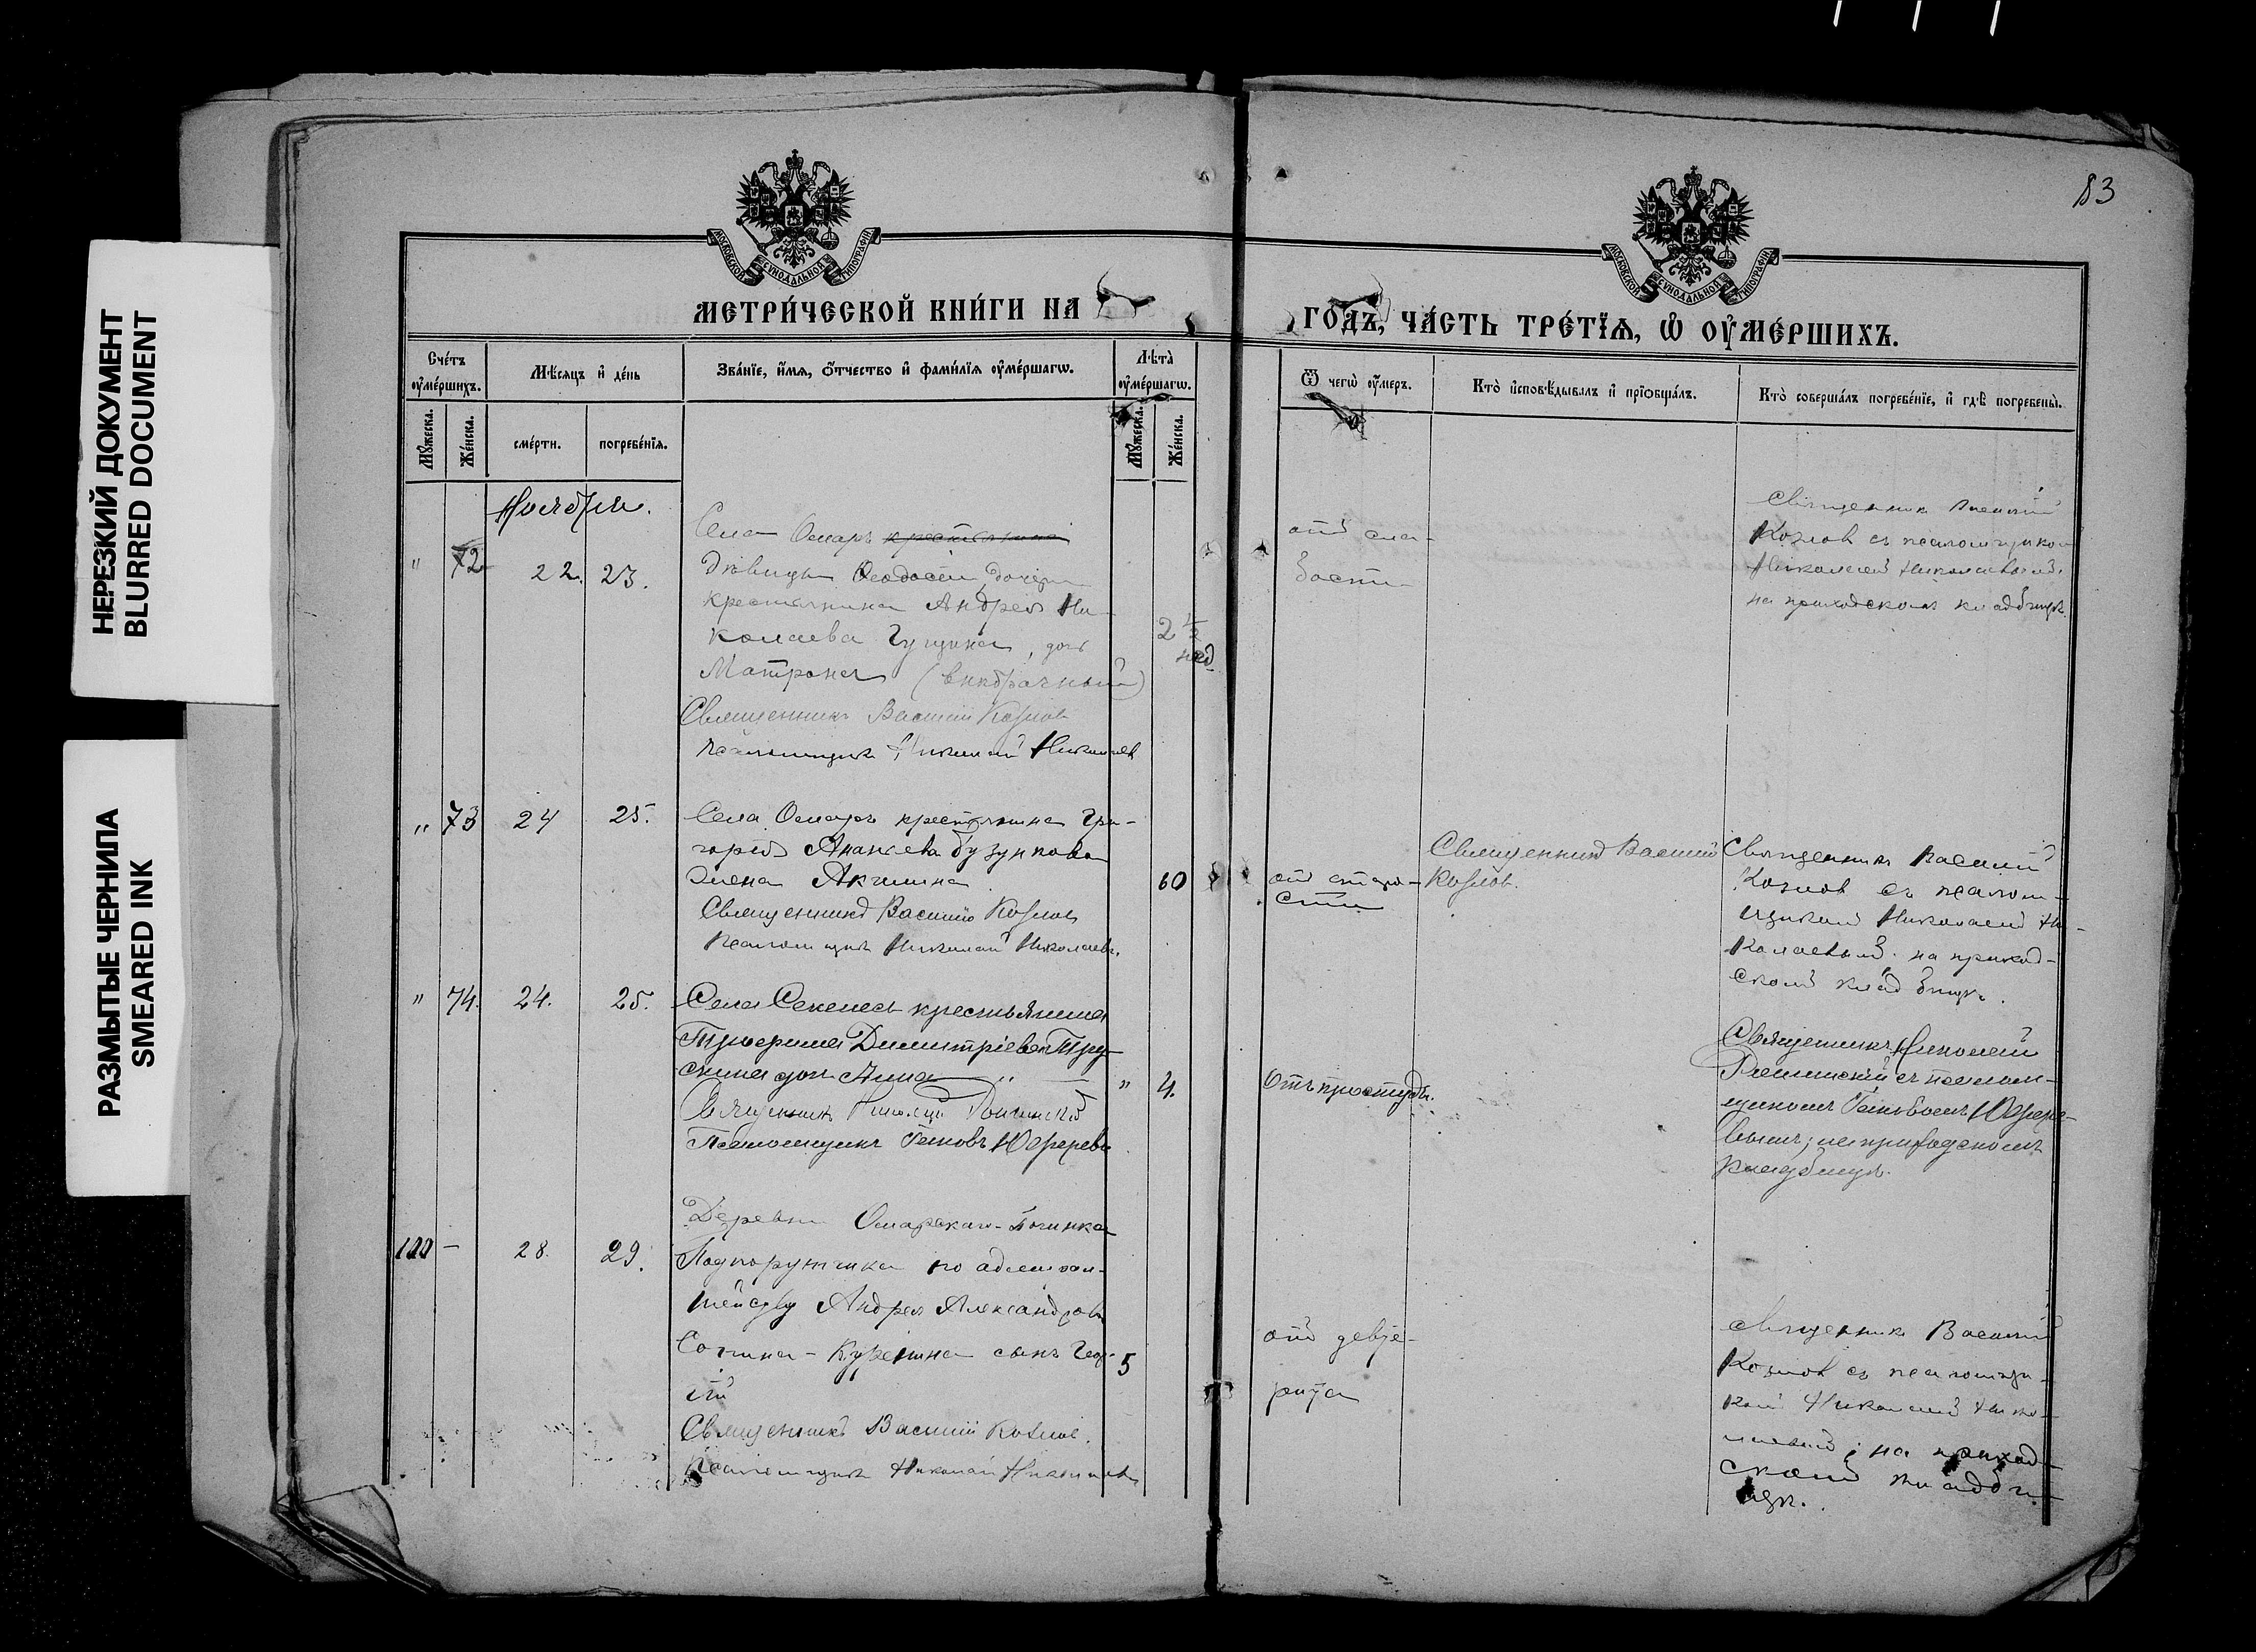 83
НЕРЕЗКИЙ ДОКУМЕНТ
BLURRED DOCUMENT
РАЗМЫТЫЕ ЧЕРНИЛА
SMEARED INK
МОСКОВСКОЙ СѴНОДАЛЬНОЙ ТИПОГРАФІИ
МОСКОВСКОЙ СѴНОДАЛЬНОЙ ТИПОГРАФІИ
МЕТРИ́ЧЕСКОЙ КНИ́ГИ НА
ГОДЪ, ЧА́СТЬ ТРЕ́ТЇѦ, Ѡ҆ ОУ҆МЕ́РШИХЪ.
Сче́тъ оу҆ме́ршихъ.
Мѣ́сѧцъ и҆ де́нь
Зва́нїе, и҆́мѧ, ѻ҆́тчество и҆ фами́лїѧ оу҆ме́ршагѡ.
Лѣ́та оу҆ме́ршагѡ.
Ѿ чегѡ̀ оу҆́меръ.
Кто̀ и҆сповѣ́дывалъ и҆ прїѡбща́лъ.
Кто̀ соверша́лъ погребе́нїе, и҆ гдѣ̀ погребены̀.
Мꙋ́жеска.
Же́нска.
сме́рти.
погребе́нїѧ.
Мꙋ́жеска.
Же́нска.
Ноября.
" 72 22. 23.
Села Омаръ крестьянина
Дѣвицы Ѳеодосіи, дочери
крестьянина Андрея Ни-
колаева Гущина, дочь
Матрона (внѣбрачный)
Священникъ Василій Козловъ
Псаломщикъ Николай Николаев
2 ½
нед.
отъ сла-
бости
Священникъ Василій
Козловъ съ псаломщиком
Николаемъ Николаевымъ.
на приходскомъ кладбищѣ
" 73 24 25.
Села Омаръ крестьянина Гри-
горія Ананьева Бузункова
жена Акилина
Священникъ Василій Козловъ
Псаломщикъ Николай Николаевъ.
60
отъ старо-
сти
Священникъ Василій
Козлов.
Священникъ Василій
Козловъ съ псалом-
щикомъ Николаемъ Ни-
колаевымъ. на приход-
скомъ кладбищѣ.
" 74. 24. 25.
Села Секенесь крестьянина
Димитріева Тру-
дочь Анна "
Священникъ Николай
Псаломщикъ Іаковъ Юферевъ
" 4.
Отъ простуды.
Священникъ Николай
съ псалом-
щикомъ Іаковомъ Юфере-
вымъ; на приходскомъ
кладбищѣ.
100 - 28. 29.
Деревни Омарскаго-Починка
Подпоручика по адмирал-
тейству Андрея Александрова
Сотина-Кузенина сынъ Геор-
гій
Священникъ Василій Козлов.
Псаломщикъ Николай Николаевъ
5
отъ
Священникъ Василій
Козловъ съ псаломщи-
комъ Николаемъ Нико-
лаевымъ; на приход-
скомъ кладби-
щѣ.